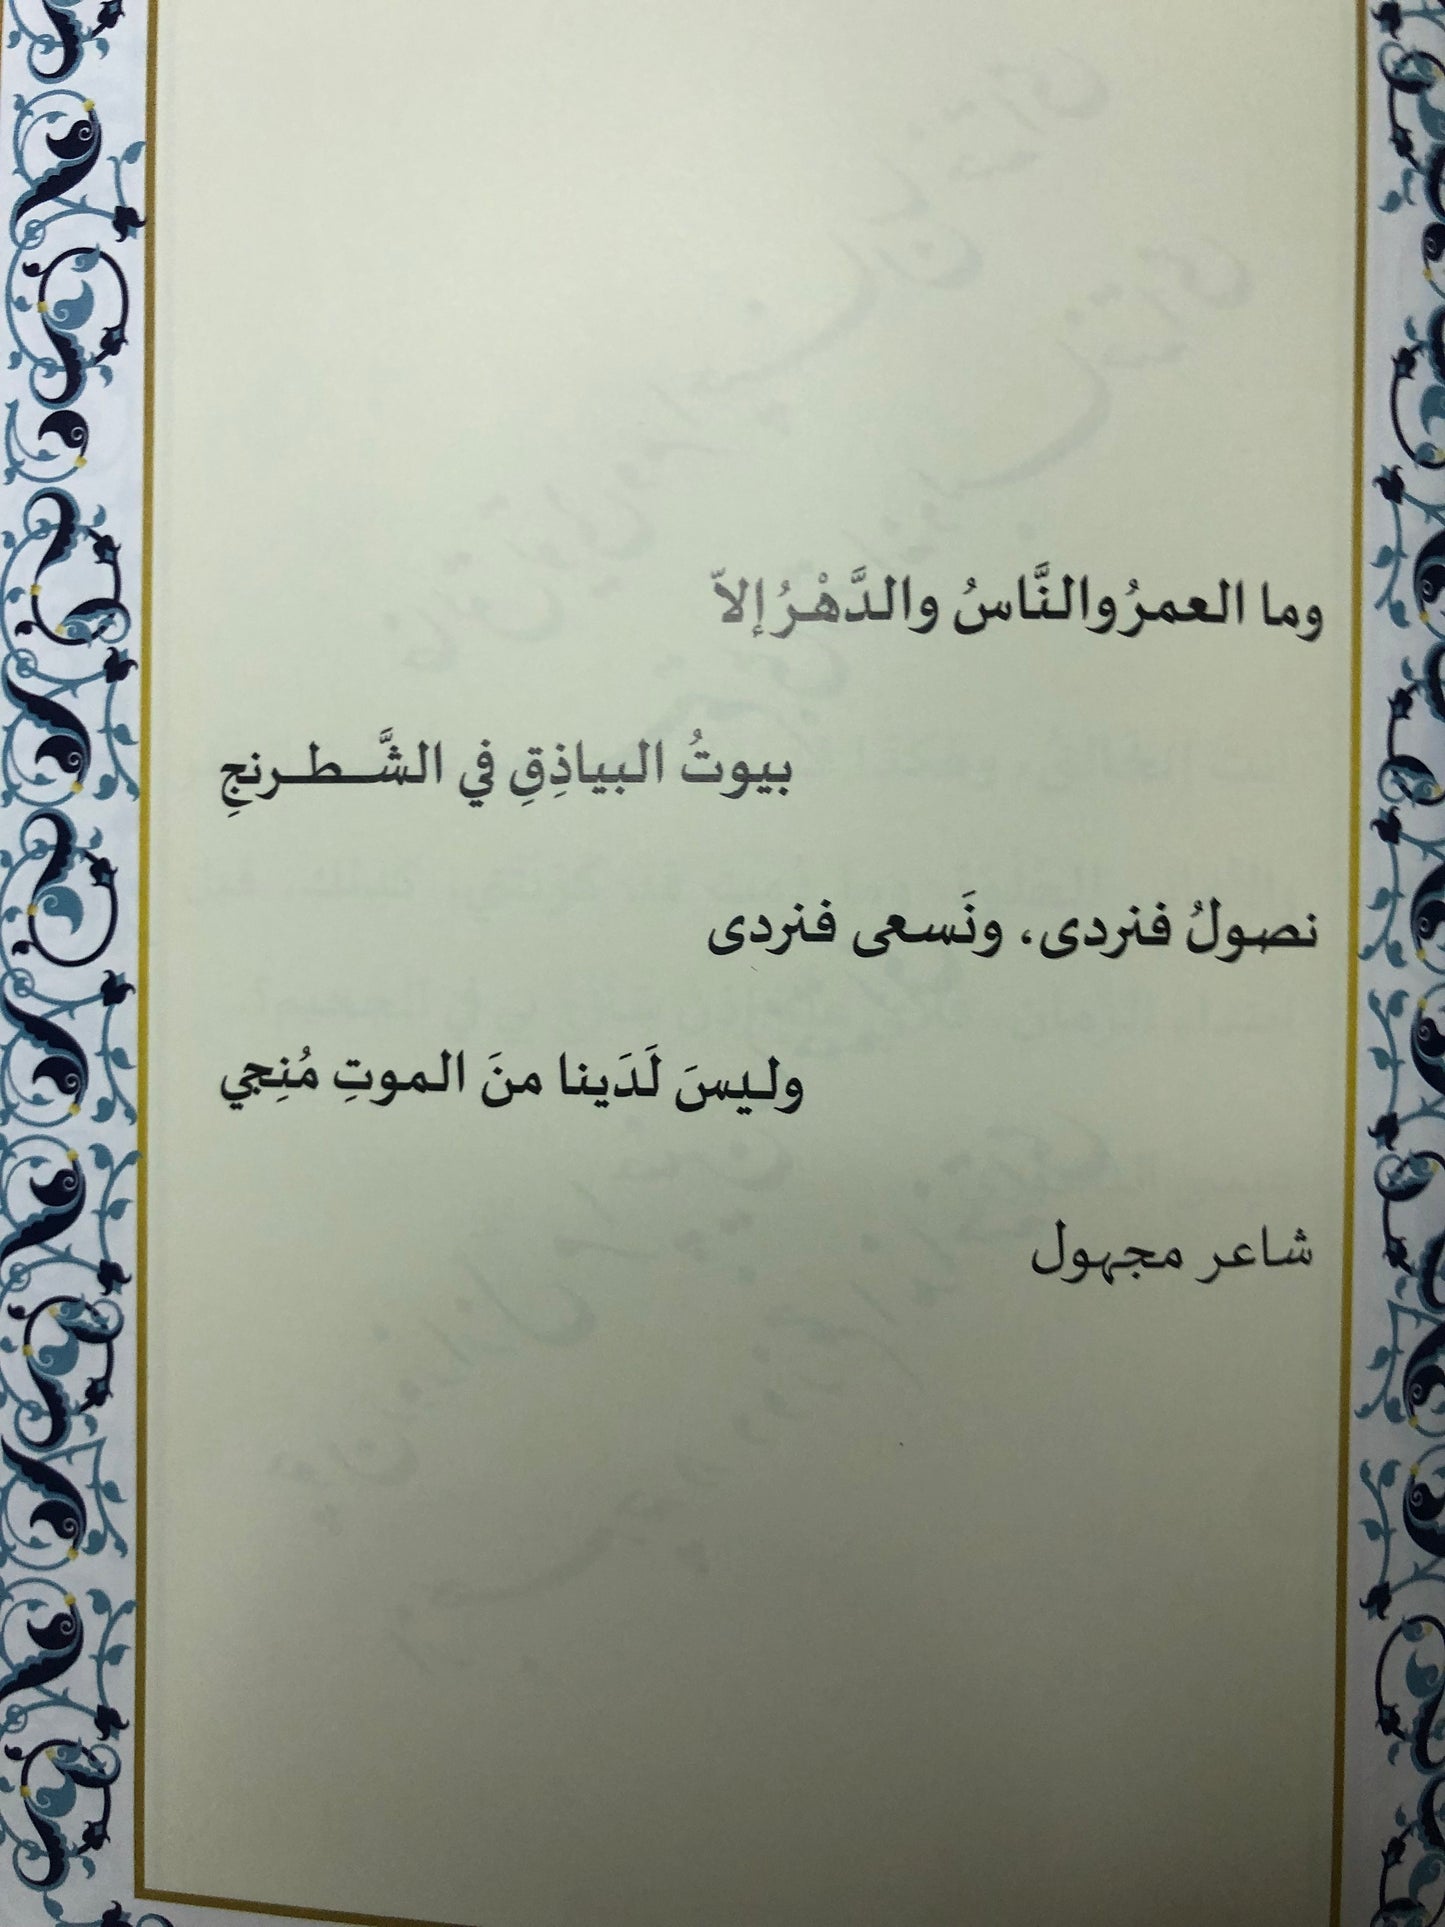 وما العمرُ والنَّاسُ والدَّهْرُ إلاّ
بيوتُ البياذِقِ في الشَّطرنجِ
نصولُ فنردى، ونَسعى فنردى
وليسَ لَدَينا منَ الموتِ مُنِجي
شاعر مجهول